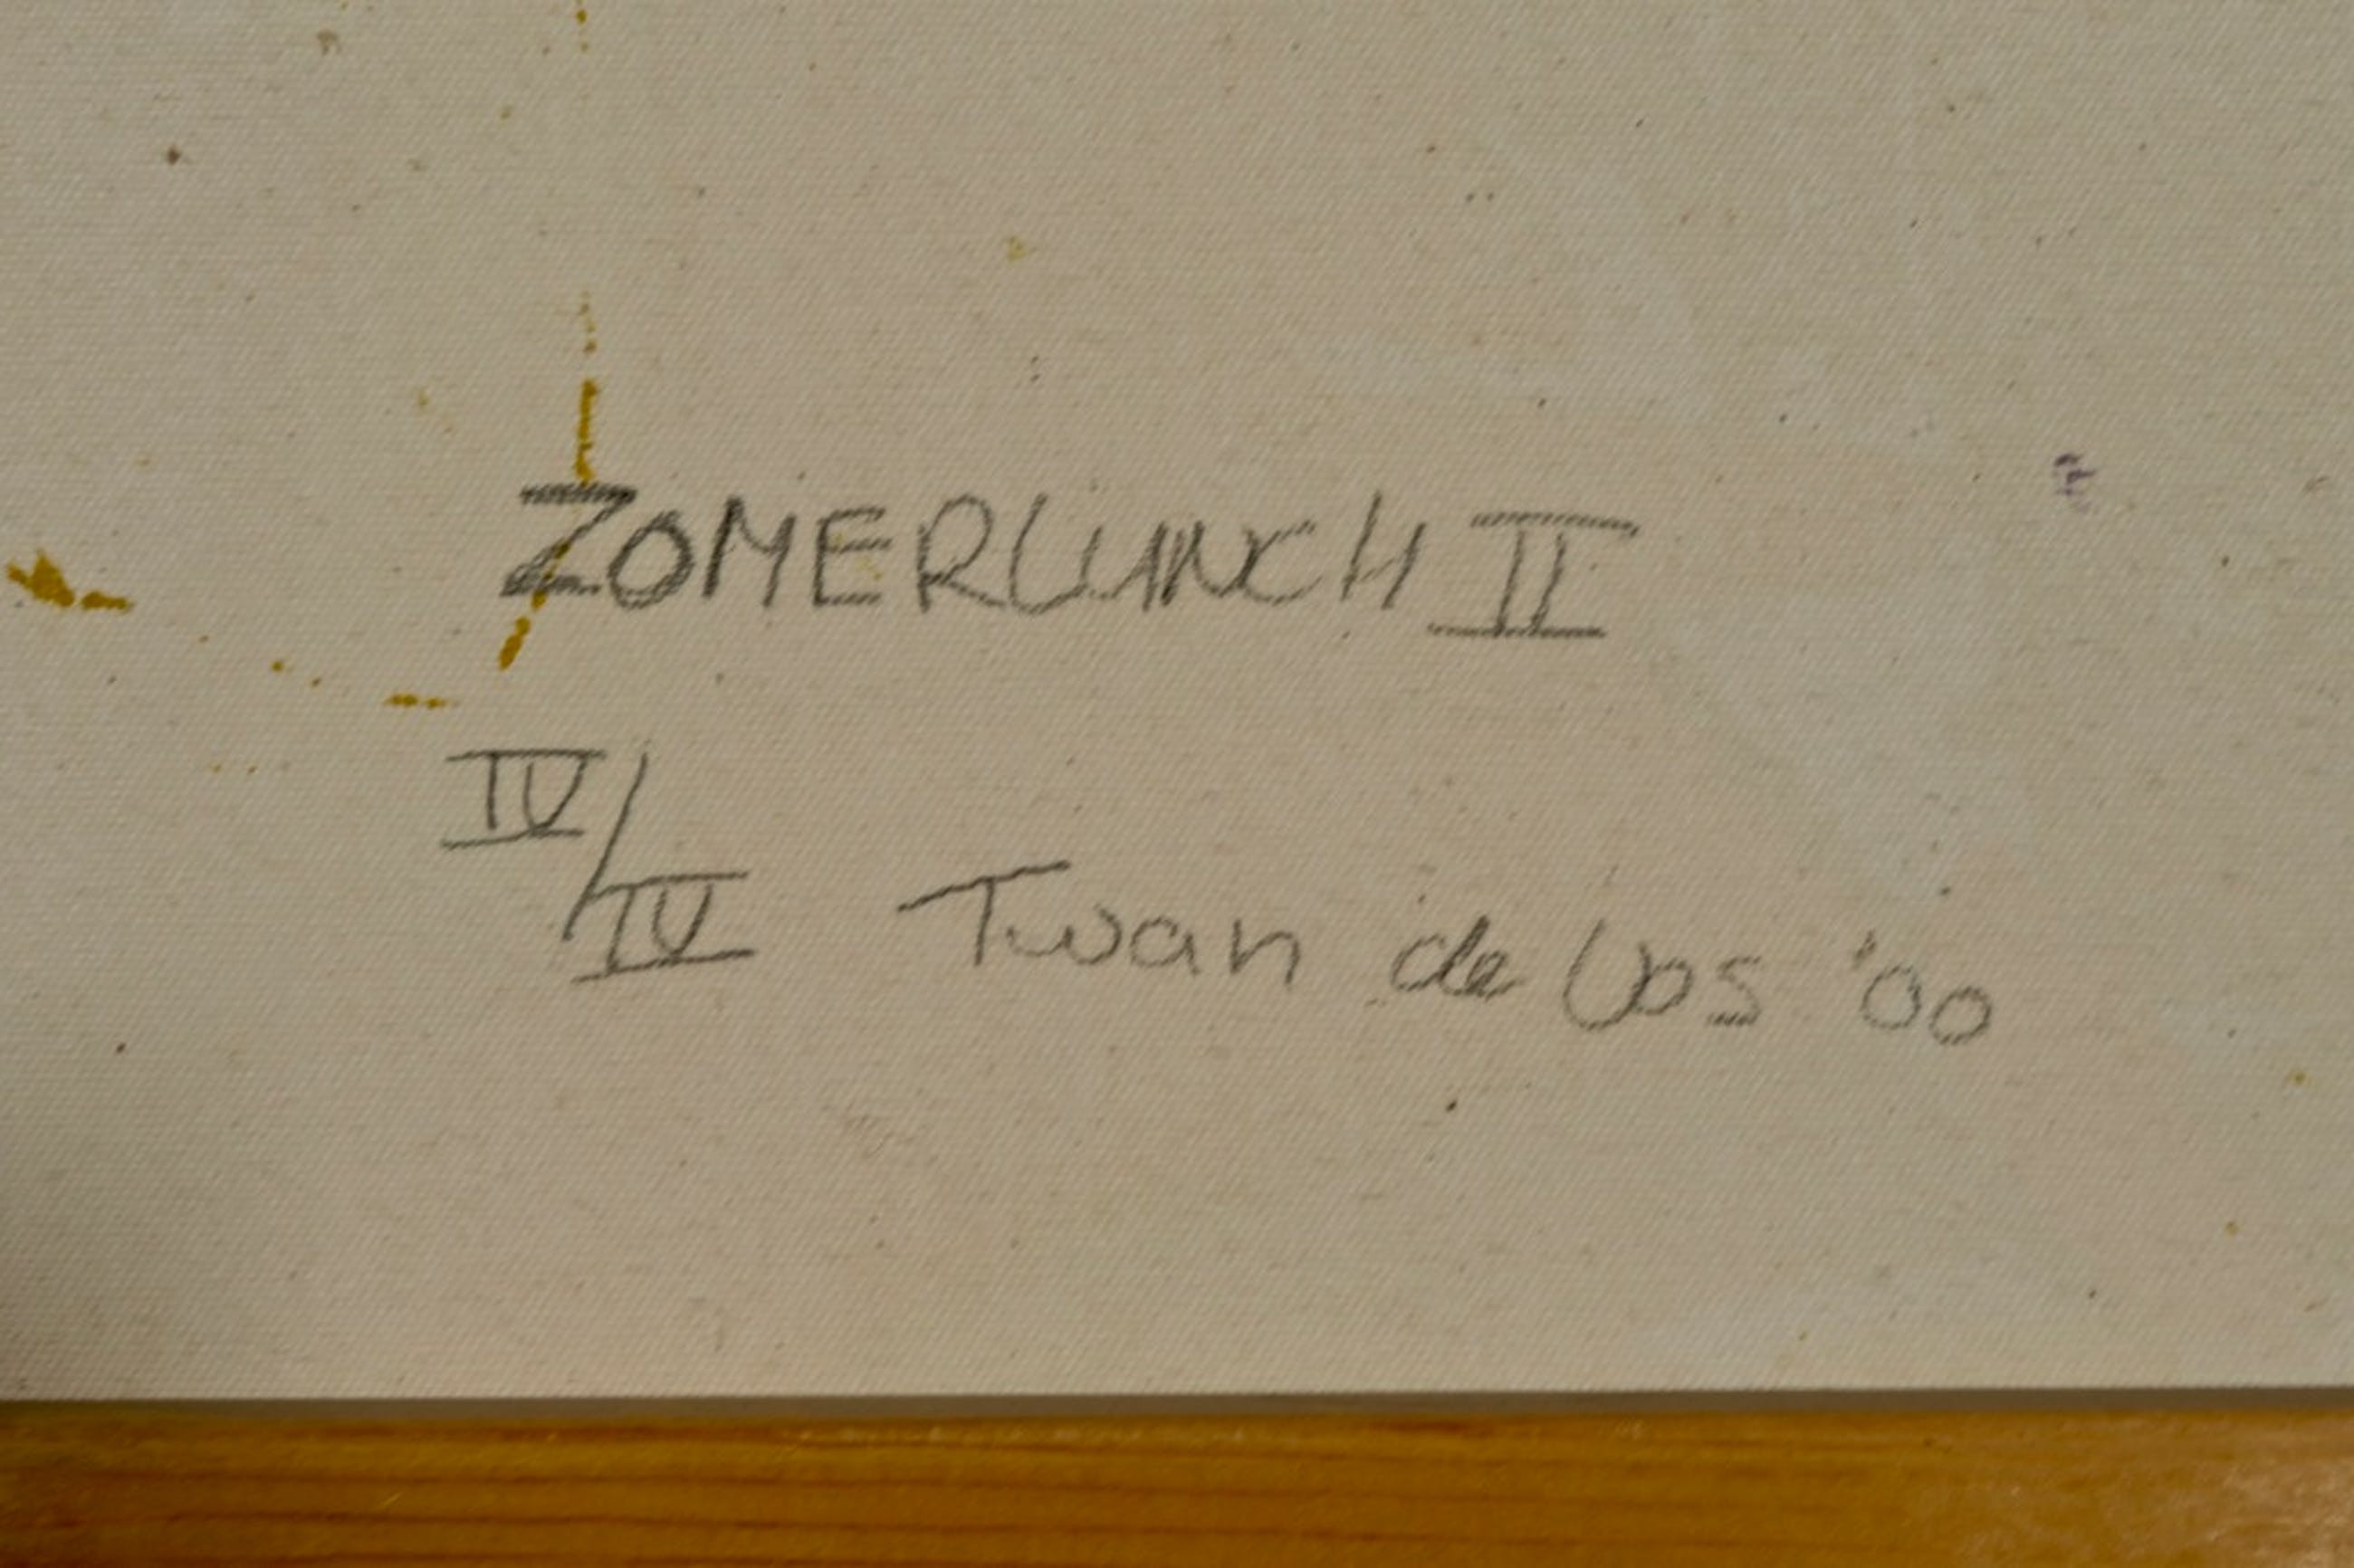 ZOMERLUNCH II
IV/IV Twan de Vos '00